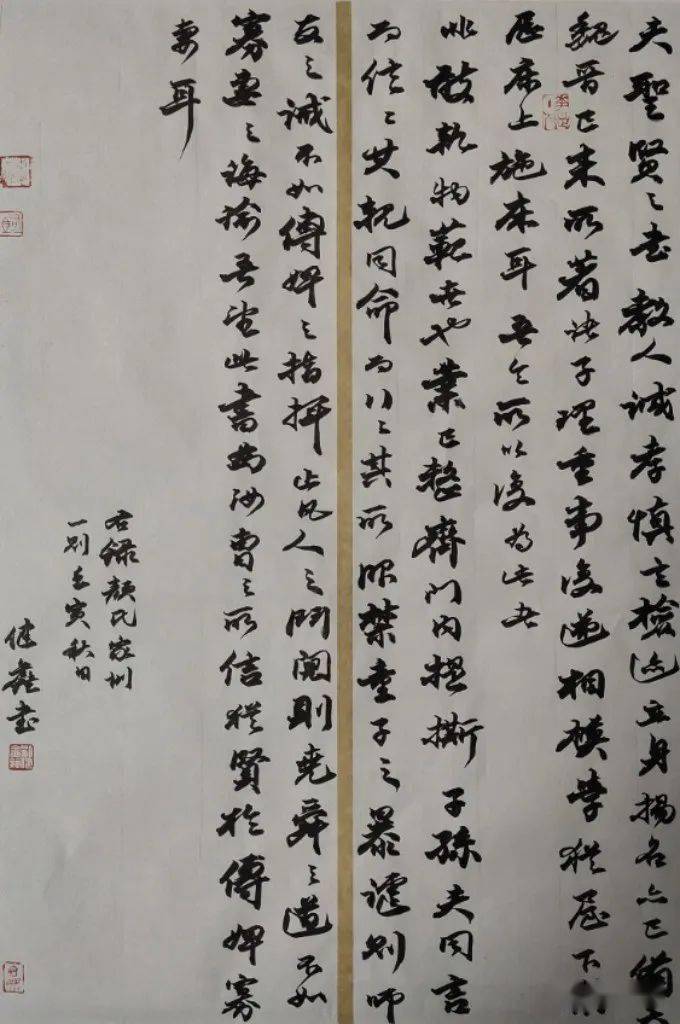 夫聖賢之書教人誠孝慎言檢迹立身揚名亦已備矣
魏晉已來所著諸子理重事複遞相模學猶屋下架
屋床上施床耳吾今所以復為此者
非敢軌物範世也業已整齊門內提撕子孫夫同言
而信〻其親同命而行〻其所服禁童子之暴謔則師
友之誡不如傅婢之指揮止凡人之鬥鬩則堯舜之道不如
寡妻之誨諭吾望此書為汝曹之所信猶賢於傅婢寡
妻耳
右錄顏氏家訓
一則壬寅秋日
健書